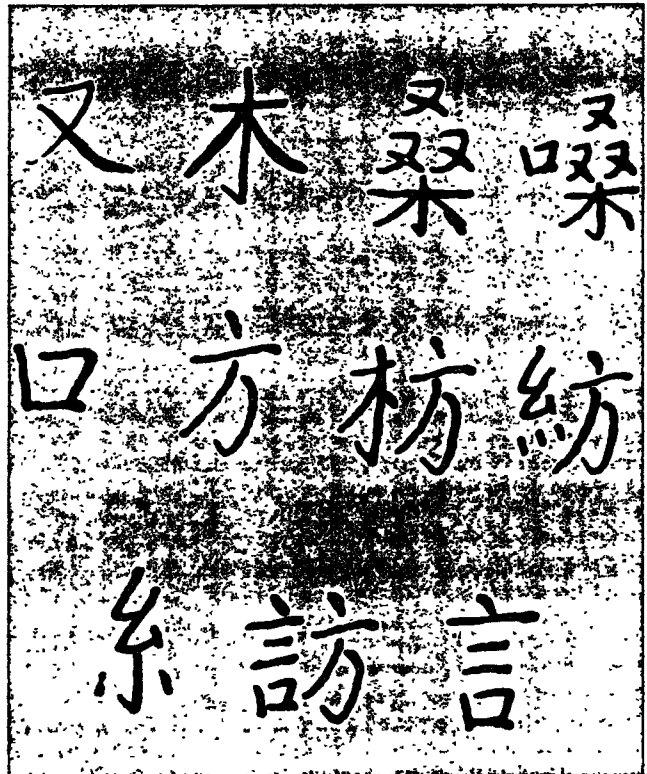 又木桑嗓
口方枋紡
糸訪言